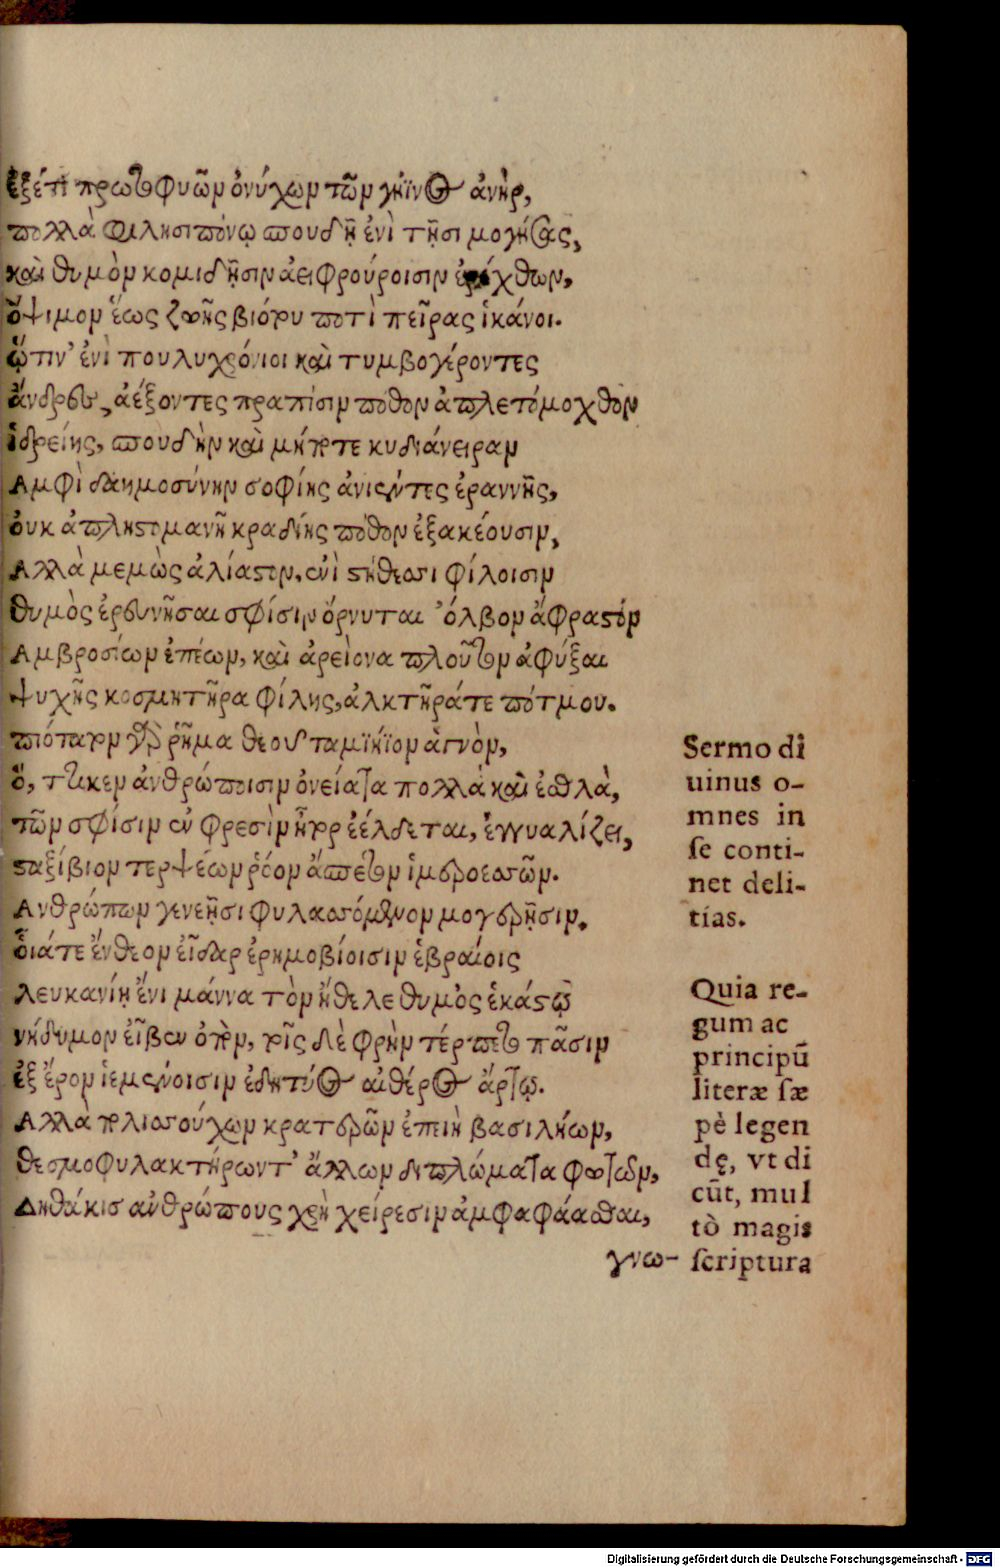 ἐξέτι πρωτοφυῶν ὀνύχων τῶν γήϊνος ἀνὴρ,
πολλὰ φιλησιπόνῳ σπουδῇ ἐνὶ τῇσι μογήσας,
καὶ θυμὸν κομιδῇσιν ἀειφρούροισιν
ὄψιμον ἕως ζωῆς βιότου ποτὶ πεῖρας ἱκάνοι.
ᾧτιν' ἐνὶ πουλυχρόνιοι καὶ τυμβογέροντες
ἄνδρες, ἀέξοντες πραπίσιν πόθον ἀπλετόμοχθον
ἰδρείης, σπουδὴν καὶ μήποτε κυδιάνειραν
Αμφὶ δαημοσύνην σοφίης ἀνιέντες ἐραννῆς,
ὀυκ ἀπληστομανῆ κραδίης πόθον ἐξακέουσιν,
Αλλὰ μεμὼς ἀλίαστον. ἐνὶ στήθεσσι φίλοισιν
θυμὸς ἐρευνῆσαι σφίσιν ὄρνυται ὄλβον ἄφραστόν
Αμβροσίων ἐπέων, καὶ ἀρείονα πλοῦτον ἀφύξαι
Ψυχῆς κοσμητῆρα φίλης, ἀλκτῆράτε πότμου.
ῥῆμα θεοῦ ταμιήϊον ἁγνὸν,
ὅ, τικεν ἀνθρώποισιν ὀνείατα πολλὰ καὶ ἐσθλὰ,
τῶν σφίσιν ἐν φρεσὶν ἦτορ ἐέλδεται, ἐγγυαλίζει,
σταξίβιον τερψέων ῥόον ἄσπετον ἱμεροεσσῶν.
Ανθρώπων γενεῇσι φυλασσόμενον μογερῇσιν.
οἷάτε ἔνθεον εἶδαρ ἐρημοβίοισιν ἑβραίοις
λευκανίῃ ἔνι μάννα τὸν ἤθελε θυμὸς ἑκάστῳ
νήδυμον εἶβεν ὀπὸν, τοῖς δὲ φρὴν τέρπετο πᾶσιν
ἐξ ἔρον ἱεμένοισιν ἐδητύος αἰθέρος ἄρτῳ.
Αλλὰ πολισσούχων κρατερῶν ἐπεὶη βασιλήων,
θεσμοφυλακτήρωντ' ἄλλων διπλώματα φωτῶν,
Δηθάκισ ἀνθρώπους χρὴ χείρεσιν ἀμφαφάασθαι,
γνω-
Sermo di
uinus o-
mnes in
se conti-
net deli-
tias.
Quia re-
gum ac
principũ
literæ sæ
pè legen
dę, vt di
cũt, mul
tò magis
scriptura
Digitalisierung gefördert durch die Deutsche Forschungsgemeinschaft - DFG